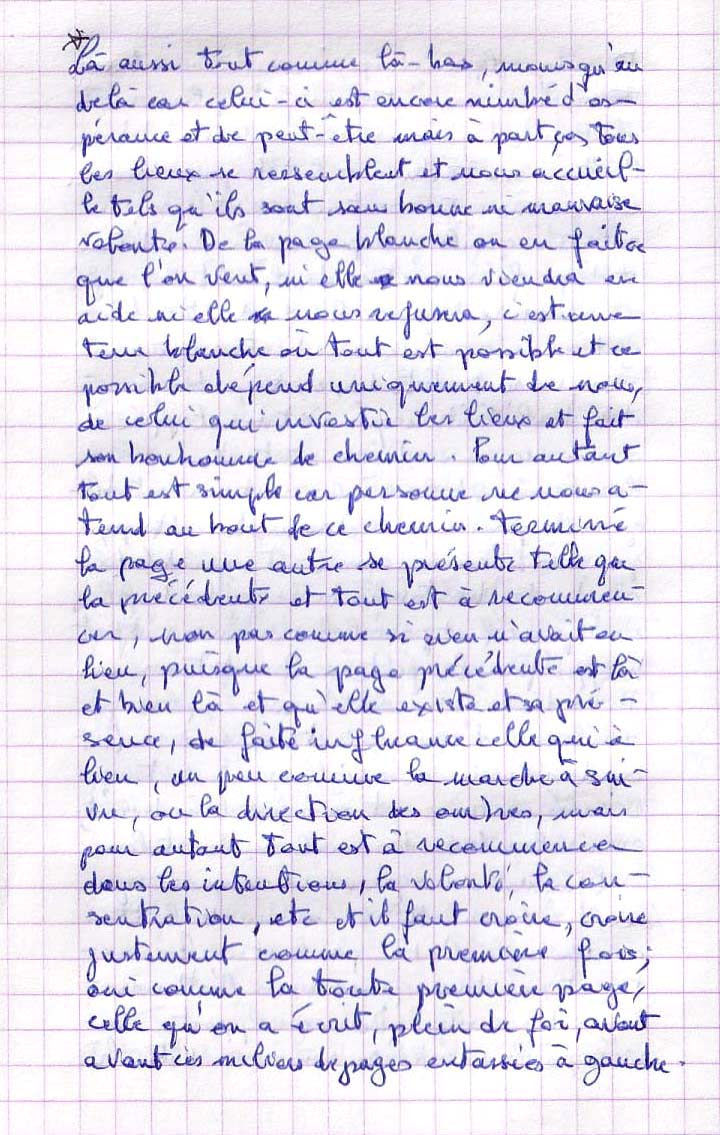 Là aussi tout comme là-bas, moins qu'au
delà car celui-ci est encore nimbé d'es-
pérance et de peut-être mais à part ça, tous
les lieux se ressemblent et nous accueil-
le tels qu'ils sont sans bonne ni mauvaise
volonté. De la page blanche on en fait ce
que l'on veut, ni elle nous viendra en
aide ni elle nous refusera, c'est une
terre blanche où tout est possible et ce
possible dépend uniquement de nous,
de celui qui investit les lieux et fait
son bonhomme de chemin. Pour autant
tout est simple car personne ne nous a-
tend au bout de ce chemin. Terminé
la page une autre se présente telle que
la précédente et tout est à recommen-
cer, non pas comme si rien n'avait eu
lieu, puisque la page précédente est là
et bien là et qu'elle existe et sa pré-
sence, de faite influance celle qui a
lieu, un peu comme la marche à sui-
vre, ou la direction des ombres, mais
pour autant tout est à recommencer
dans les intentions, la volonté, la con-
sentration, etc et il faut croire, croire
justement comme la première fois,
oui comme la toute première page,
celle qu'on a écrit, plein de foi, avant
avant ces milliers de pages entassées à gauche.